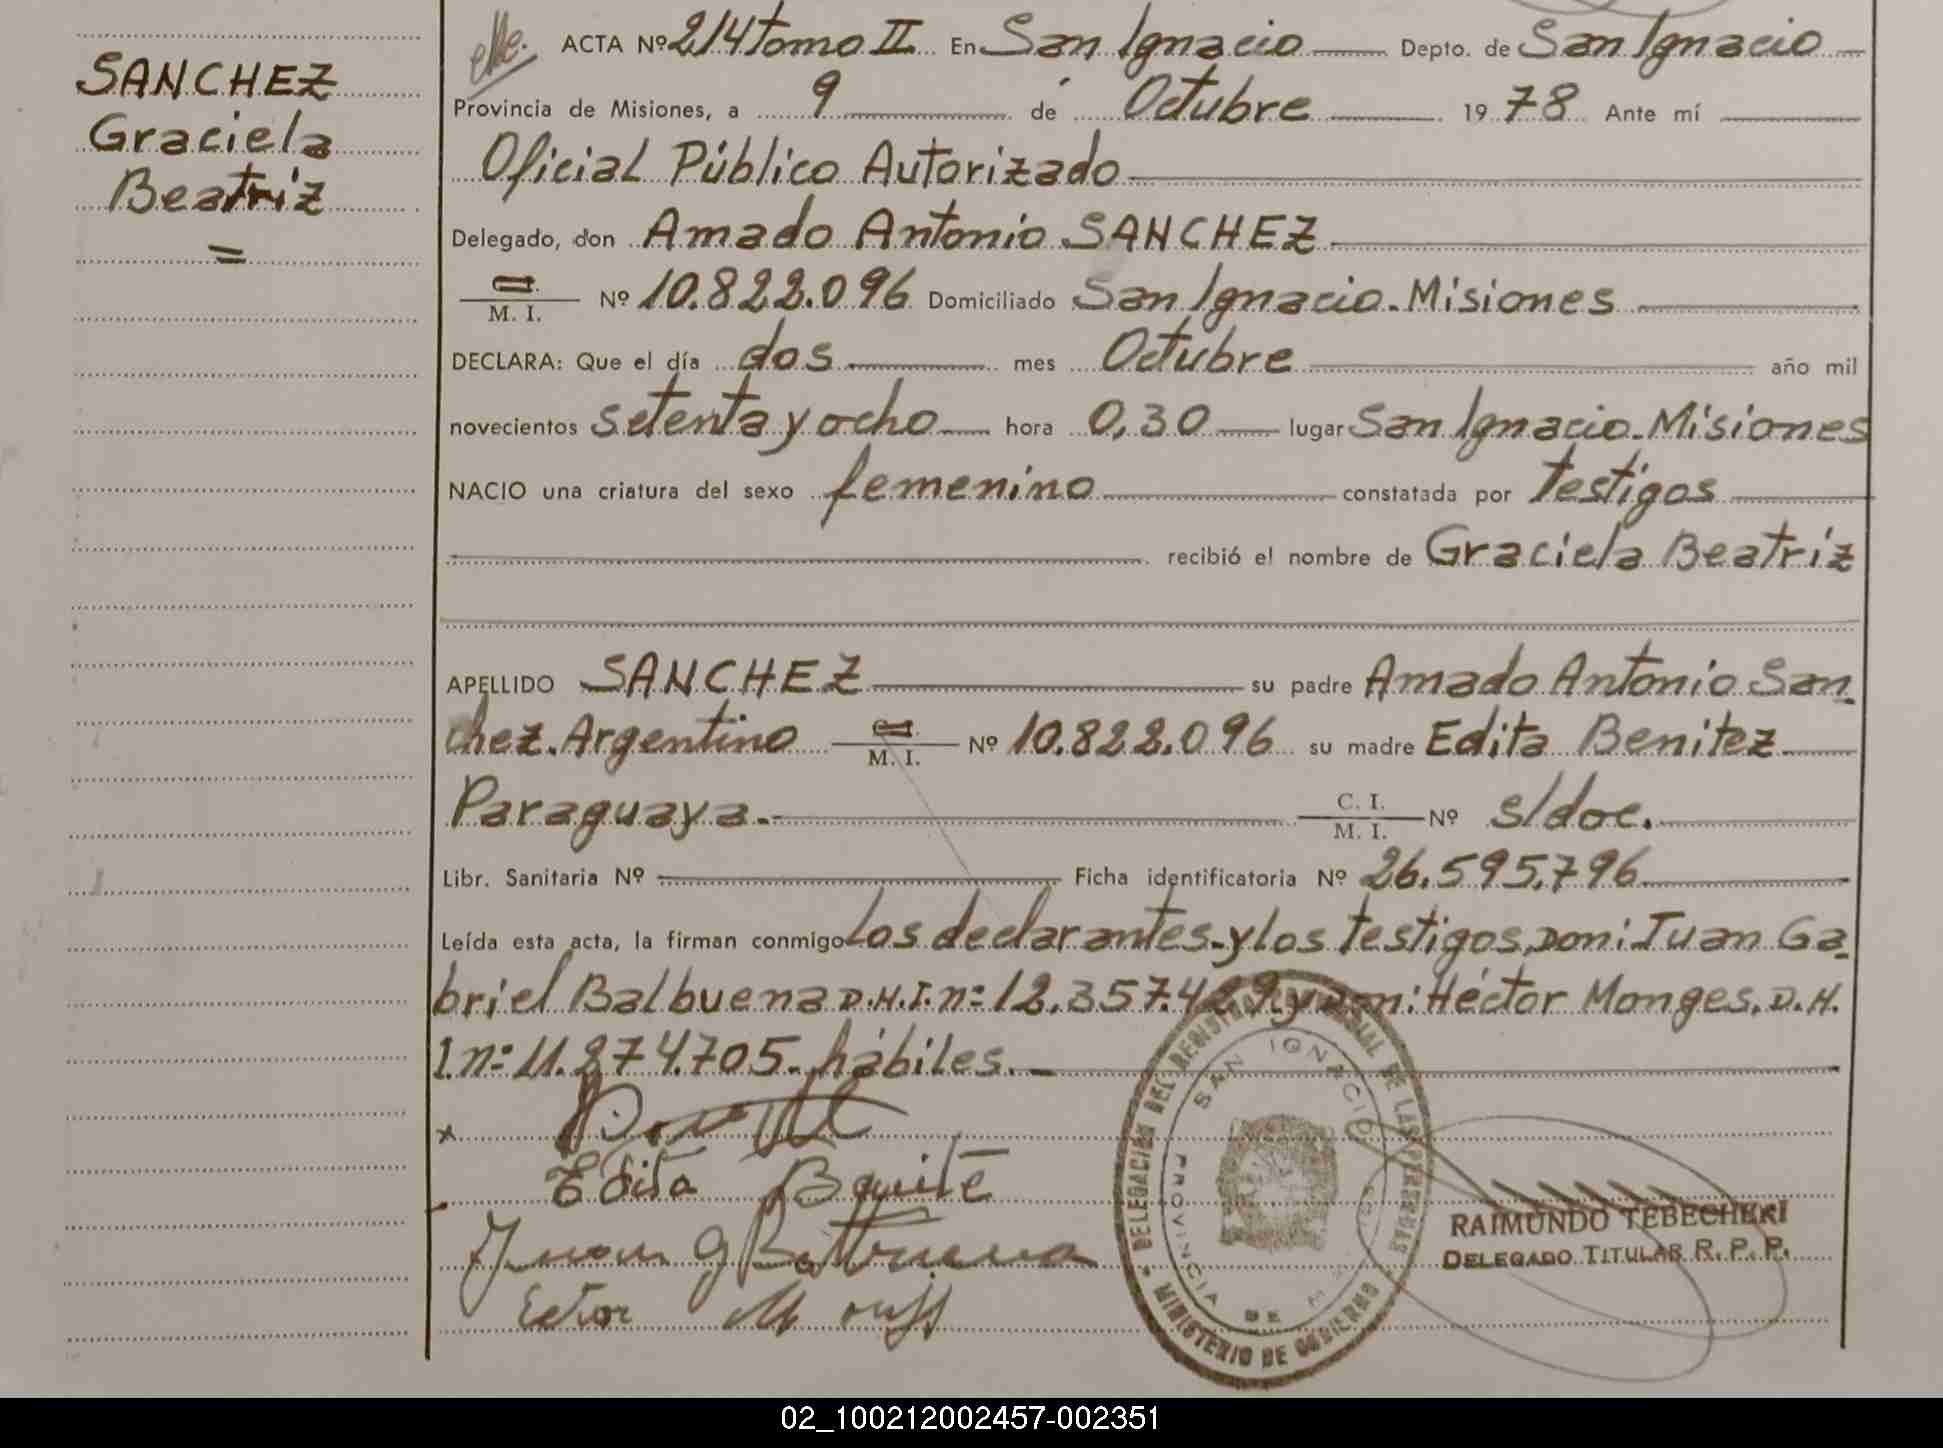 SANCHEZ
Graciela
Beatriz
=
ACTA Nº 214 tomo II En San Ignacio Depto. de San Ignacio
Provincia de Misiones, a 9 de Octubre 1978 Ante mí
Oficial Público Autorizado
Delegado, don Amado Antonio SANCHEZ
M. I. Nº 10.822.096 Domiciliado San Ignacio. Misiones
DECLARA: Que el día dos mes Octubre año mil
novecientos setenta y ocho hora 0,30 lugar San Ignacio. Misiones
NACIO una criatura del sexo femenino constatada por testigos
recibió el nombre de Graciela Beatriz
APELLIDO SANCHEZ su padre Amado Antonio San
chez. Argentino M. I. Nº 10.822.096 su madre Edita Benitez
Paraguaya. C. I. M. I. Nº s/doc.
Libr. Sanitaria Nº Ficha identificatoria Nº 26.595.796
Leída esta acta, la firman conmigo los declarantes y los testigos, Don: Juan Ga
briel Balbuena D.N.I. n: 12.357.429 y Don: Héctor Monges. D.N.
I. n: 11.274.705. hábiles.
Edita
DELEGACION DEL REGISTRO PROVINCIAL DE LAS PERSONAS
SAN IGNACIO
PROVINCIA DE MISIONES
MINISTERIO DE GOBIERNO
RAIMUNDO TEBECHERI
DELEGADO TITULAR R. P. P.
02_100212002457-002351